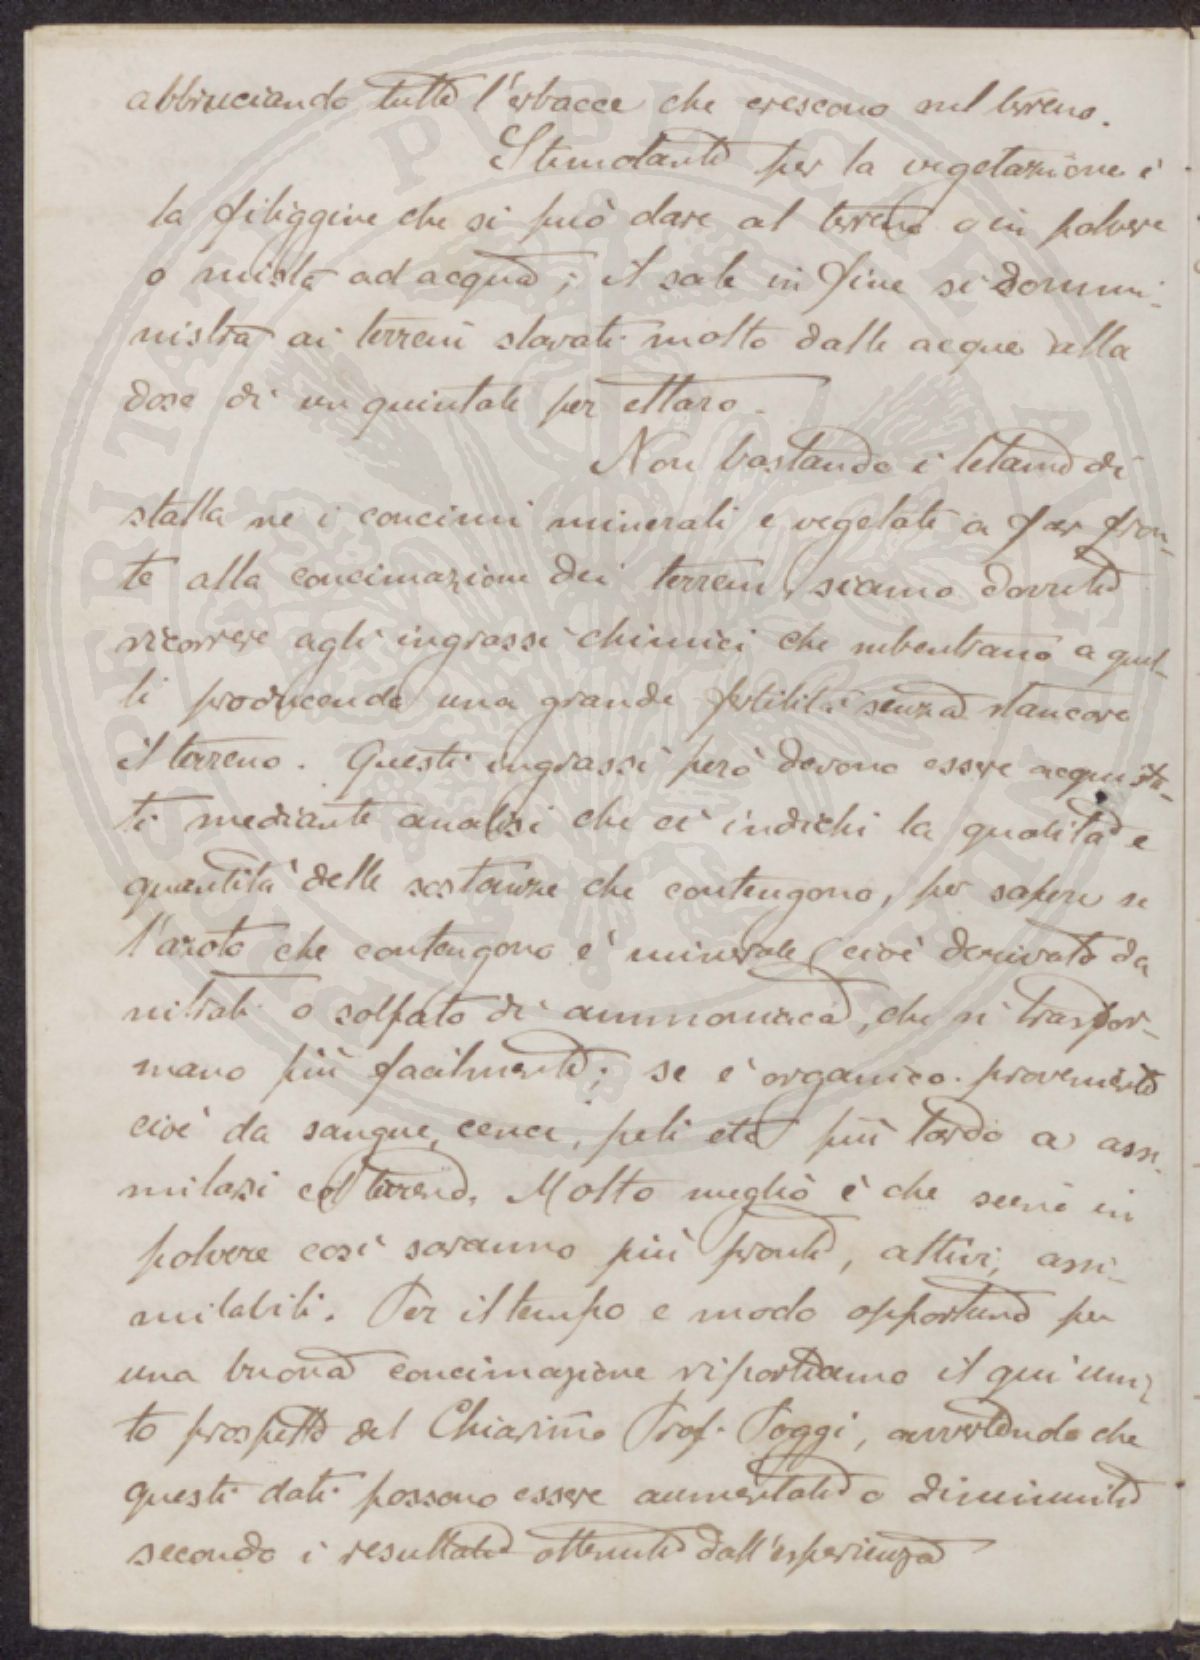 abbruciando tutte l'erbacce che crescono nel terreno.
Stimolante per la vegetazione è
la filiggine che si può dare al terreno o in polvere
o mista ad acqua; il sale in fine si sommi-
nistra ai terreni slavati molto dalle acque alla
dose di un quintale per ettaro.
Non bastando i letami di
stalla ne i concimi minerali e vegetali a far fron-
te alla concimazione dei terreni, siamo dovuti
ricorrere agli ingrassi chimici che subentrano a quel-
li producendo una grande fertilità senza stancare
il terreno. Questi ingrassi però devono essere acquista-
ti mediante analisi che ci indichi la qualità e
quantità delle sostanze che contengono, per sapere se
l'azoto che contengono è minerale, cioè derivato da
nitrati o solfato di ammoniaca, che si trasfor-
mano più facilmente; se è organico. proveniente
cioè da sangue, cenci, peli etc più tardo a assi-
milarsi col terreno. Molto meglio è che sieno in
polvere così saranno più pronti, attivi, assi-
milabili. Per il tempo e modo opportuno per
una buona concimazione riportiamo il qui uni-
to prospetto del Chiarimo Prof. Poggi, avvertendo che
questi dati possono essere aumentati o diminuiti
secondo i resultati ottenuti dall'esperienza
PROSPERITATI PUBLICAE AUGENDAE